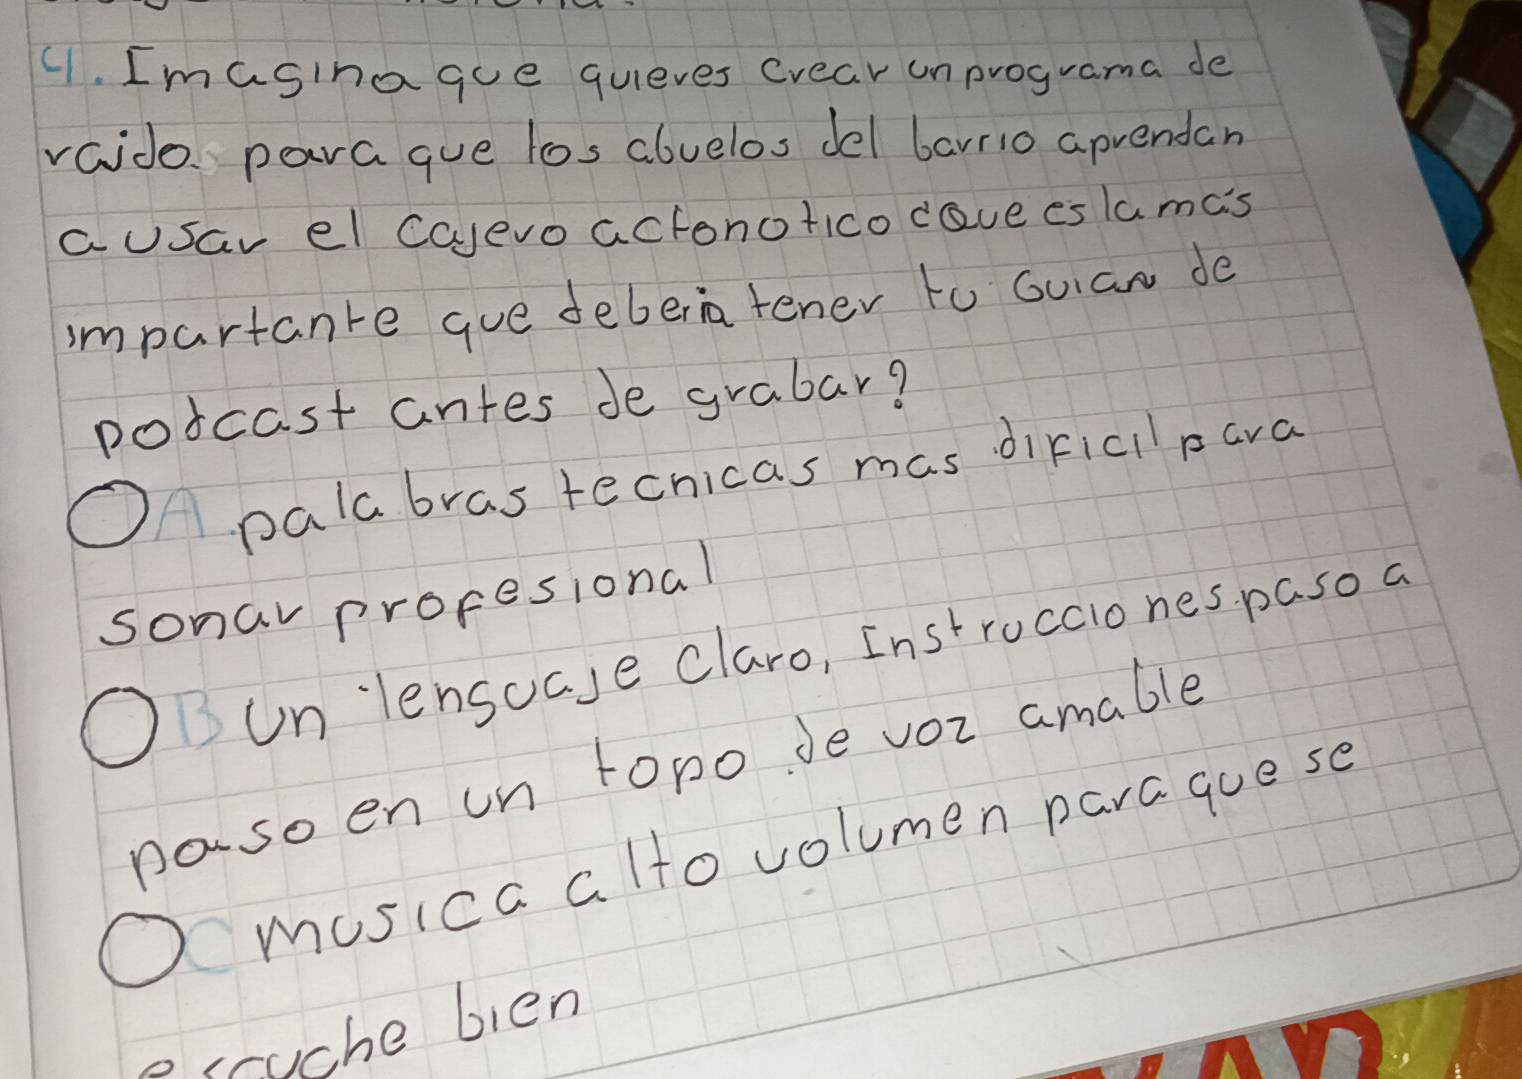 4. Imagina que quieres crear un programa de
raido para que los abuelos del barrio aprendan
a usar el cajero actonotico coue es la más
impartante que deberia tener tu Guian de
podcast antes de grabar?
A. palabras tecnicas mas dificil para
sonar profesional
B un lenguaje claro, Instrucciones paso a
paso en un topo de voz amable
C musica alto volumen para que se
escuche bien